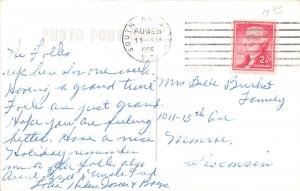 PHOTO POST
SOUTH
AUG 8
11 - AM
1956
15 00
2¢
Hi Folks
up here for one week.
Having a grand time
Folks are just grand.
Hope you are feeling
better. Have a nice
Holiday remember
me to the folks also
Aunt & Uncle Fred
Love Helen
Mrs Belle
Family
1011-13th Ave
Monroe,
Wisconsin